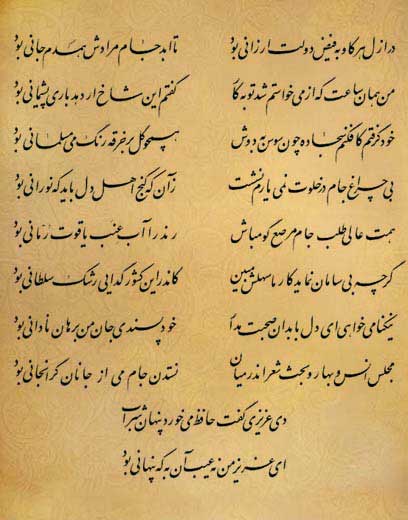 در ازل هر کاو به فیض دولت ارزانی بود تا ابد جام مرادش همدم جانی بود
من همان ساعت که از می خواستم شد توبه کار گفتم این شاخ ار دهد باری پشیمانی بود
خود گرفتم کافکنم سجاده چون سوسن به دوش همچو گل بر خرقه رنگ می مسلمانی بود
بی چراغ جام در خلوت نمی یارم نشست زآن که کنج اهل دل باید که نورانی بود
همت عالی طلب جام مرصع گو مباش رند را آب عنب یاقوت رمانی بود
گرچه بی سامان نماید کار ما سهلش مبین کاندر این کشور گدایی رشک سلطانی بود
نیکنامی خواهی ای دل با بدان صحبت مدار خودپسندی جان من برهان نادانی بود
مجلس انس و بهار و بحث شعر اندر میان نستدن جام می از جانان گرانجانی بود
دی عزیزی گفت حافظ می خورد پنهان شراب
ای عزیز من نه عیب آن به که پنهانی بود